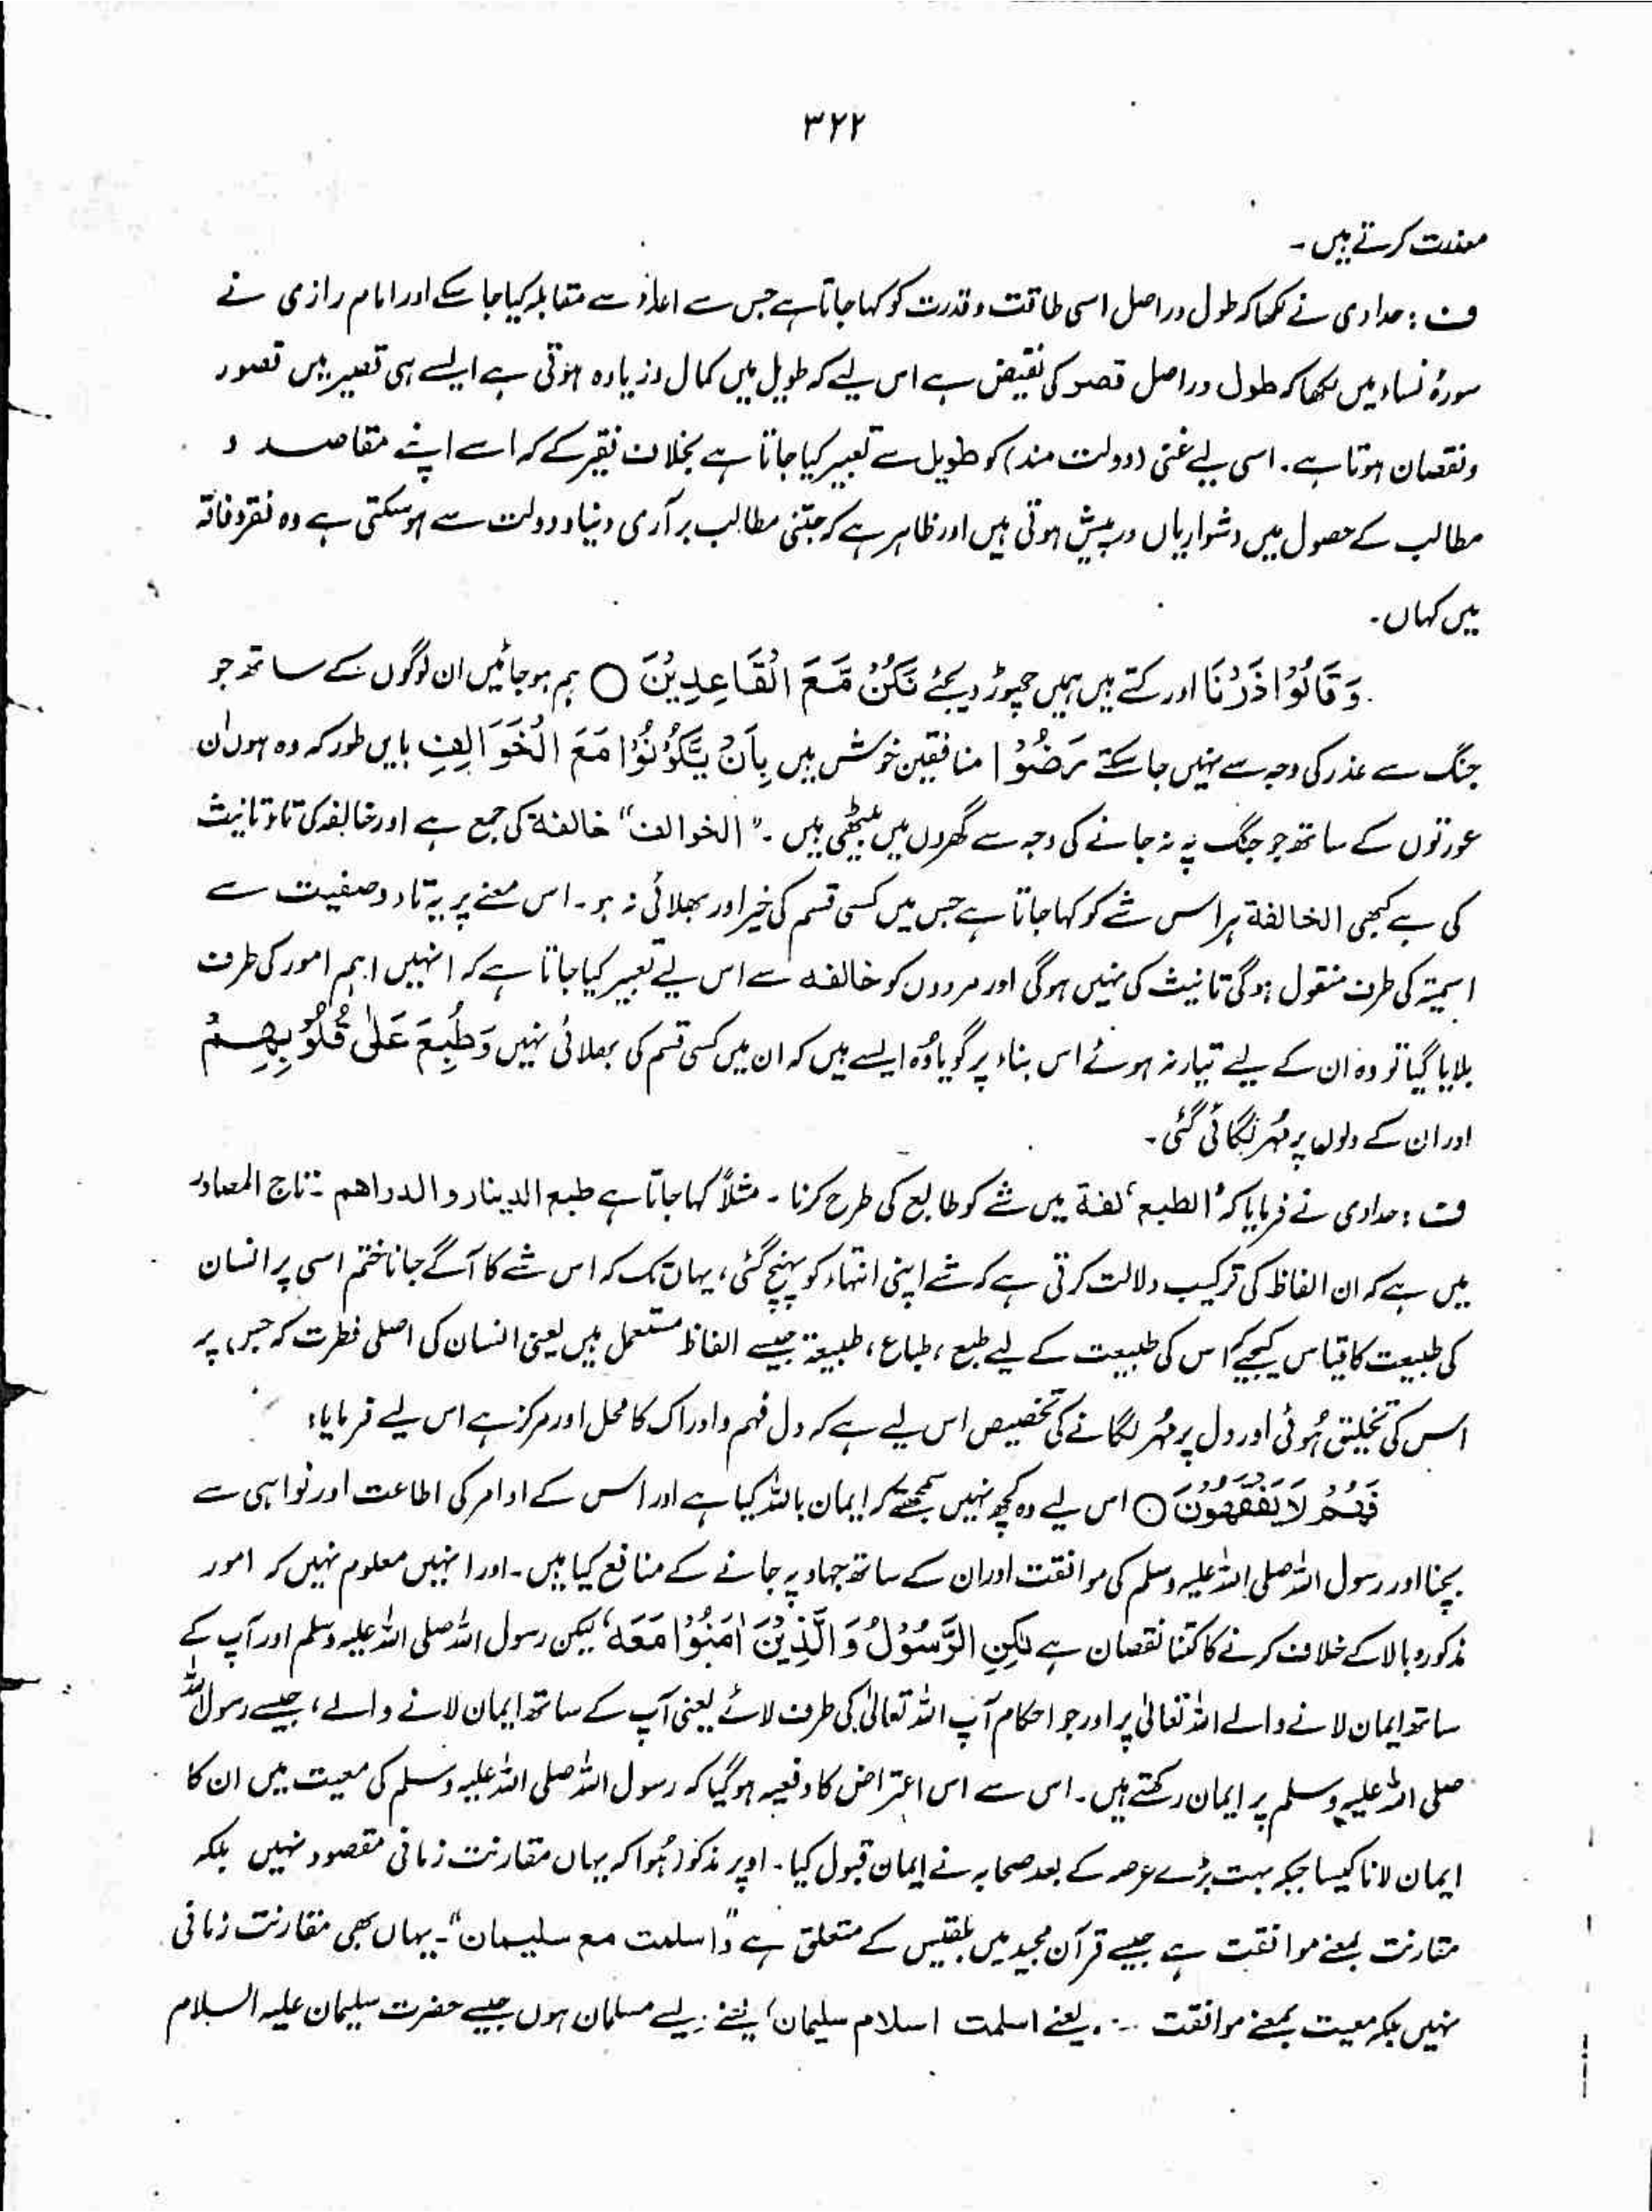 ۳۲۲
معذرت کرتے ہیں ۔
ف : حدادی نے لکھا کہ طول دراصل اسی طاقت و قدرت کو کہا جاتا ہے جس سے اعداء سے مقابلہ کیا جا سکے اور امام رازی نے
سورۂ نساء میں لکھا کہ طول دراصل قصر کی نقیض ہے اس لیے کہ طویل میں کمال و زیادہ ہوتی ہے ایسے ہی قصیر میں قصور
و نقصان ہوتا ہے ۔ اسی لیے غنی (دولت مند) کو طویل سے تعبیر کیا جاتا ہے بخلاف فقیر کے کہ اسے اپنے مقاصد و
مطالب کے حصول میں دشواریاں درپیش ہوتی ہیں اور ظاہر ہے کہ جتنی مطالب برآری دنیا و دولت سے ہو سکتی ہے وہ فقر و فاقہ
میں کہاں ۔
وَ قَالُوْا ذَرْنَا اور کہتے ہیں ہمیں چھوڑ دیجئے نَكُنْ مَّعَ الْقَاعِدِيْنَ ○ ہم ہو جائیں ان لوگوں کے ساتھ جو
جنگ سے عذر کی وجہ سے نہیں جا سکتے رَضُوْا منافقین خوش ہیں بِاَنْ يَّكُوْنُوْا مَعَ الْخَوَالِفِ بایں طور کہ وہ ہوں ان
عورتوں کے ساتھ جو جنگ پہ نہ جانے کی وجہ سے گھروں میں بیٹھی ہیں ۔ "الخوالف" خالفۃ کی جمع ہے اور خالفہ کی تاء تانیث
کی ہے کبھی الخالفۃ ہر اس شے کو کہا جاتا ہے جس میں کسی قسم کی خیر اور بھلائی نہ ہو ۔ اس معنے پر یہ تاء وصفیت سے
اسمیۃ کی طرف منقول ہوگی تانیث کی نہیں ہوگی اور مردوں کو خالفہ سے اس لیے تعبیر کیا جاتا ہے کہ انہیں اہم امور کی طرف
بلایا گیا تو وہ ان کے لیے تیار نہ ہوئے اس بناء پر گویا وُہ ایسے ہیں کہ ان میں کسی قسم کی بھلائی نہیں وَطُبِعَ عَلٰى قُلُوْبِهِمْ
اور ان کے دلوں پر مُہر لگائی گئی ۔
ف : حدادی نے فرمایا کہ 'الطبع' لغۃ میں شے کو طابع کی طرح کرنا ۔ مثلاً کہا جاتا ہے طبع الدینار و الدراھم ۔ تاج المصادر
میں ہے کہ ان الفاظ کی ترکیب دلالت کرتی ہے کہ شے اپنی انتہاء کو پہنچ گئی ، یہاں تک کہ اس شے کا آگے جانا ختم اسی پر انسان
کی طبیعت کا قیاس کیجیے اس کی طبیعت کے لیے طبع ، طباع ، طبیعۃ جیسے الفاظ مستعمل ہیں یعنی انسان کی اصلی فطرت کہ جس پہ
اس کی تخلیق ہُوئی اور دل پر مُہر لگانے کی تخصیص اس لیے ہے کہ دل فہم و ادراک کا محل اور مرکز ہے اس لیے فرمایا :
فَهُمْ لَا يَفْقَهُوْنَ ○ اس لیے وہ کچھ نہیں سمجھتے کہ ایمان باللہ کیا ہے اور اس کے اوامر کی اطاعت اور نواہی سے
بچنا اور رسول اللہ صلی اللہ علیہ وسلم کی موافقت اور ان کے ساتھ جہاد پہ جانے کے منافع کیا ہیں ۔ اور انہیں معلوم نہیں کہ امور
مذکورہ بالا کے خلاف کرنے کا کتنا نقصان ہے لٰكِنِ الرَّسُوْلُ وَ الَّذِيْنَ اٰمَنُوْا مَعَهٗ لیکن رسول اللہ صلی اللہ علیہ وسلم اور آپ کے
ساتھ ایمان لانے والے اللہ تعالیٰ پر اور جو احکام آپ اللہ تعالیٰ کی طرف لائے یعنی آپ کے ساتھ ایمان لانے والے ، جیسے رسول اللہ
صلی اللہ علیہ وسلم پر ایمان رکھتے ہیں ۔ اس سے اس اعتراض کا دفعیہ ہو گیا کہ رسول اللہ صلی اللہ علیہ وسلم کی معیت میں ان کا
ایمان لانا کیسا جبکہ بہت بڑے عرصہ کے بعد صحابہ نے ایمان قبول کیا ۔ اوپر مذکور ہُوا کہ یہاں مقارنت زمانی مقصود نہیں بلکہ
مقارنت بمعنے موافقت ہے جیسے قرآن مجید میں بلقیس کے متعلق ہے "و اسلمت مع سلیمان" ۔ یہاں بھی مقارنت زمانی
نہیں بلکہ معیت بمعنے موافقت ... یعنے اسلمت اسلام سلیمان' یعنے ایسے مسلمان ہوں جیسے حضرت سلیمان علیہ السلام